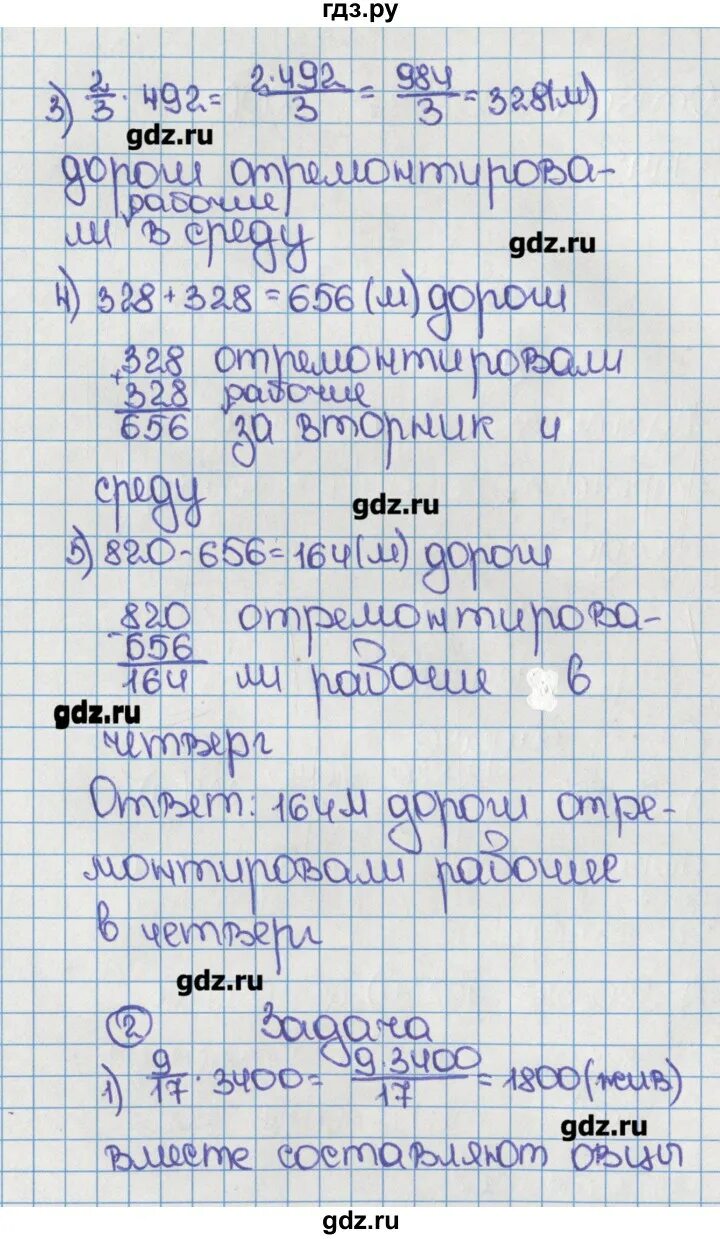 гдз.ру
3) 2/3 · 492 = 2·492/3 = 984/3 = 328(м)
gdz.ru
дороги отремонтирова-
рабочие
ли в среду
gdz.ru
4) 328 + 328 = 656 (м) дороги
328 отремонтировали
+ 328 рабочие
656 за вторник и
среду
gdz.ru
5) 820 - 656 = 164(м) дороги
820 отремонтирова-
- 656
164 ли рабочие в
gdz.ru
четверг
Ответ: 164м дороги отре-
монтировали рабочие
в четверг
gdz.ru
2 Задача
1) 9/17 · 3400 = 9·3400/17 = 1800 (жив)
gdz.ru
вместе составляют овцы
gdz.ru